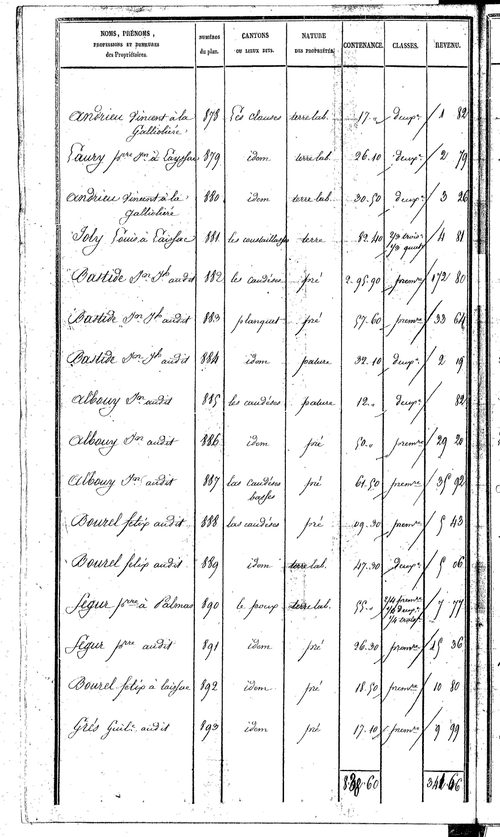 NOMS, PRÉNOMS, PROFESSIONS ET DEMEURES des Propriétaires. NUMÉROS du plan. CANTONS OU LIEUX DITS. NATURE DES PROPRIÉTÉS. CONTENANCE. CLASSES. REVENU.
Andrieu Vincent à la 878 Les clauses terre lab. 17 " deuxe 1 82
Galliolière
Faury pre Jn à Layssac 879 idem terre lab. 26.10 deuxe 2 79
Andrieu Vincent à la 880 idem terre lab. 30.50 deuxe 3 26
Galliolière
Joly Louis à Laissac 881 terre 82.40 4 81
Bastide Jn Jh audit 882 les caudéses pré 2.95.90 premre 172 80
Bastide Jn Jh audit 883 planquet pré 57.60 premre 33 64
Bastide Jn Jh audit 884 idem pature 32.10 deuxe 2 19
Albouy Jn audit 885 les caudéses pature 12 " deuxe 82
Albouy Jn audit 886 idem pré 50 " premre 29 20
Albouy Jn audit 887 Las caudéses pré 61.50 premre 35 92
basses
Bourel felix audit 888 Las caudéses pré 09.30 premre 5 43
Bourel felix audit 889 idem terre lab. 47.30 deuxe 5 06
Ségur pierre à Palmas 890 le poux terre lab. 55 " 7 77
Ségur pierre audit 891 idem pré 26.30 premre 15 36
Bourel felix à Laissac 892 idem pré 18.50 premre 10 80
Grès Guil. audit 893 idem pré 17.10 premre 9 99